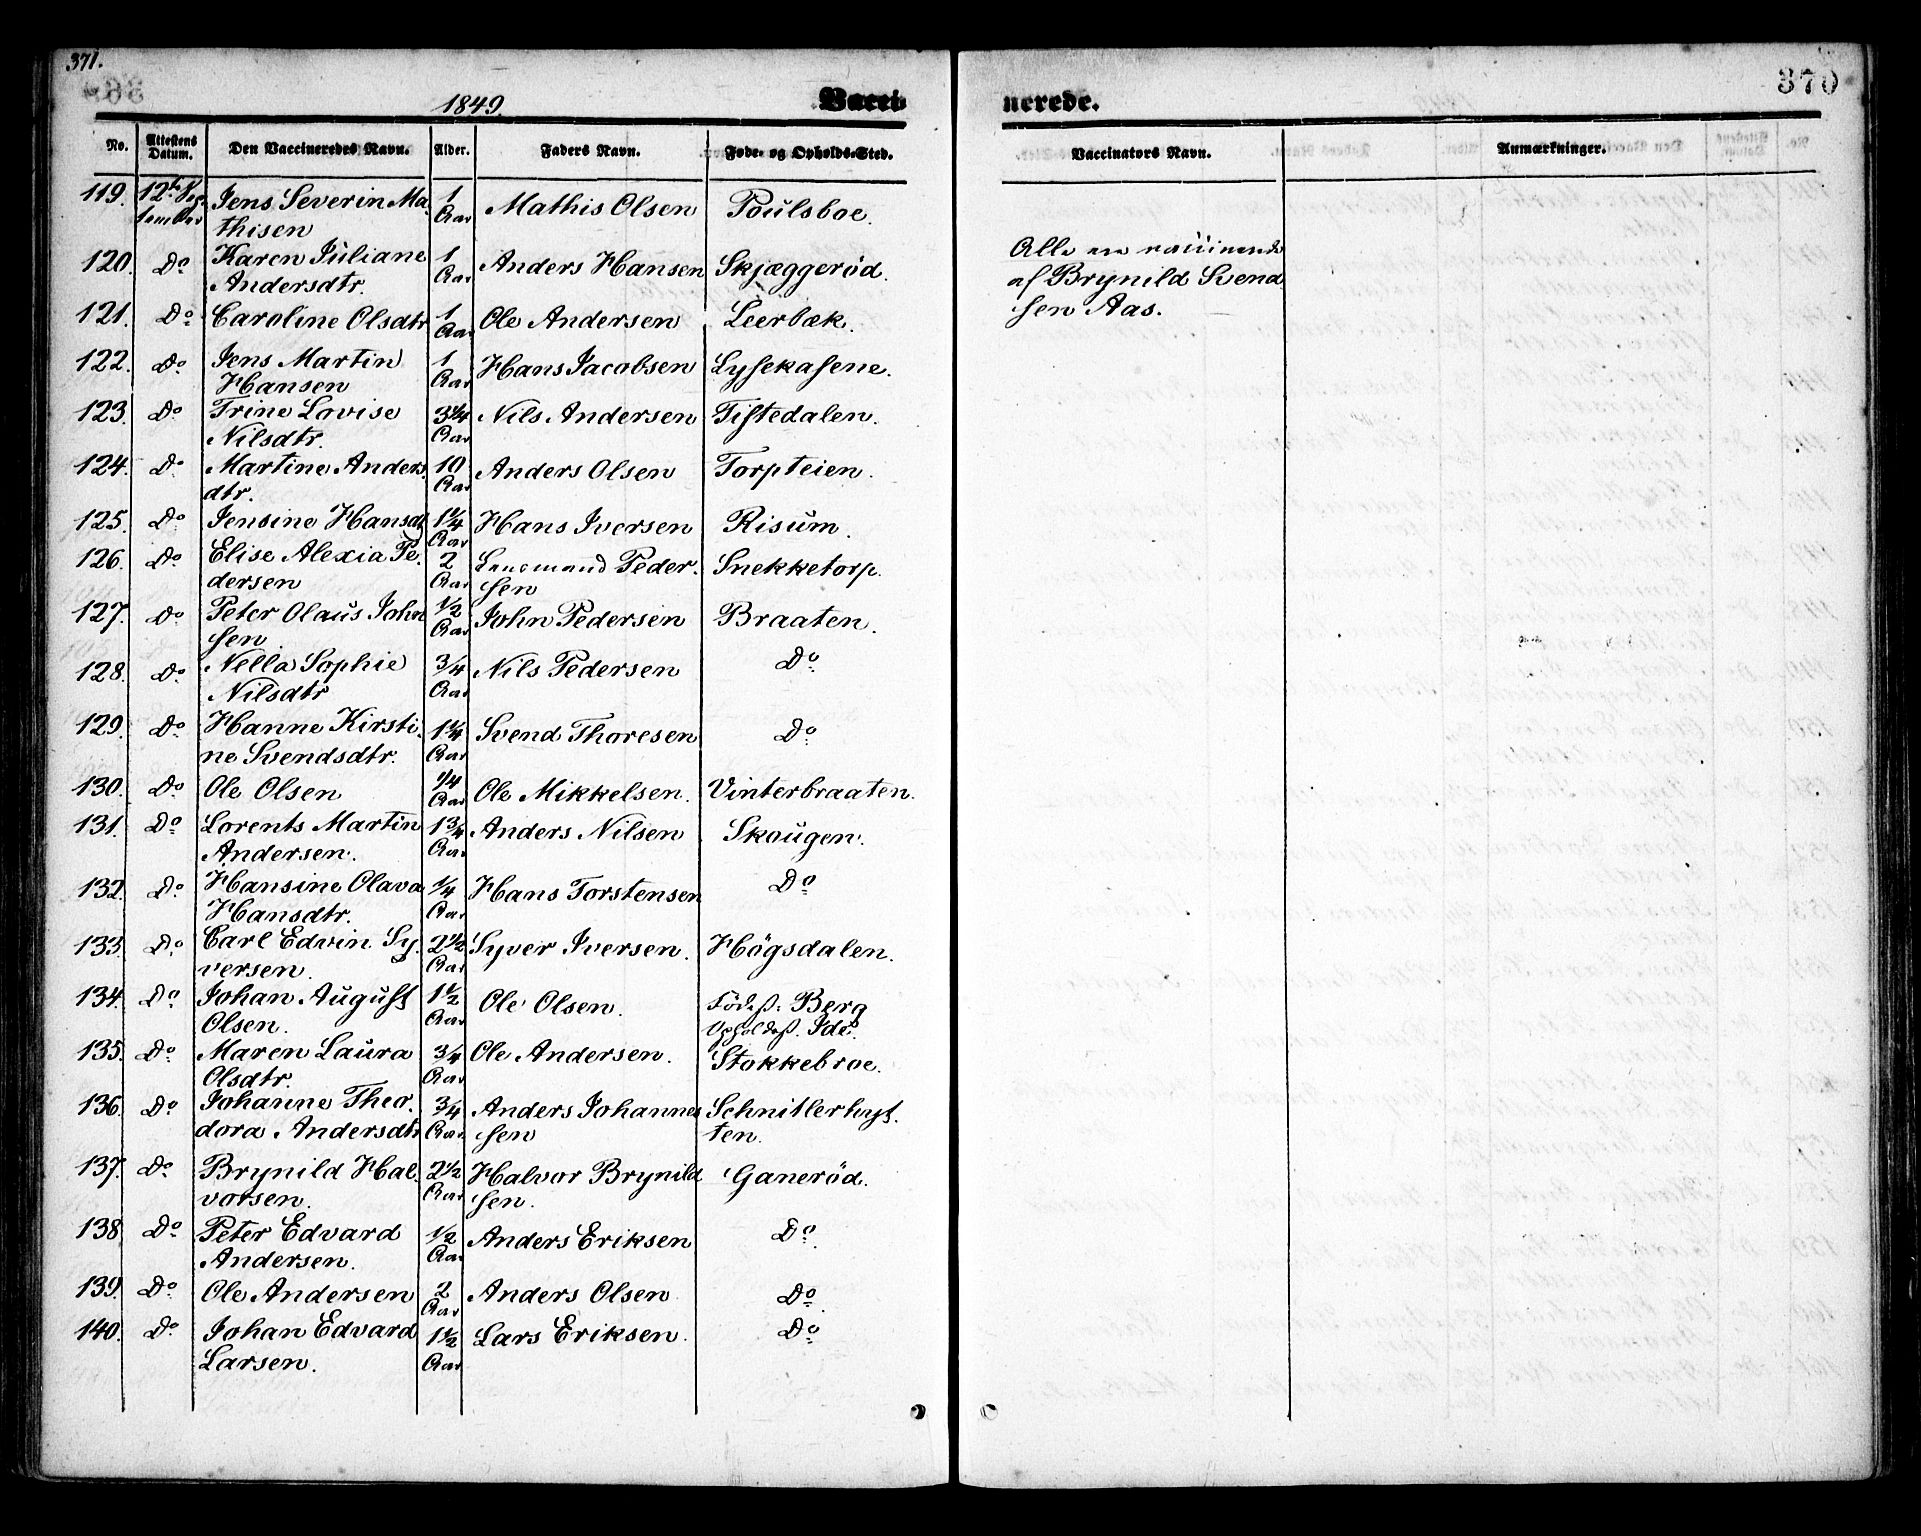 371.
370
1849.
Vacci-
nerede.
No. Attestens Datum. Den Vaccineredes Navn. Alder. Faders Navn. Føde- og Opholds-Sted. Vaccinators Navn. Anmærkninger.
119. 12te Sep- 1 Mathis Olsen Poulsboe.
tember Jens Severin Ma- Aar
thisen
120. Do Karen Juliane 1 Anders Hansen Skjæggerød.
Andersdtr. Aar
Alle ere vaccinerede
af Brynild Svend
sen Aas.
121. Do Caroline Olsdtr 1 Ole Andersen Leerbæk.
Aar
122. Do Jens Martin 1 Hans Jacobsen Lysekasene.
Hansen Aar
123. Do Trine Lovise 3 1/4 Nils Andersen Tistedalen.
Nilsdtr. Aar
124. Do Martine Anders 10 Anders Olsen Torpteien.
dtr. Aar
125. Do Jensine Hansdtr 1 1/4 Hans Iversen Risum.
Aar
126. Do Elise Alexia Pe- 2 Lensmand Peder- Snekketorp.
dersen Aar sen
127. Do Peter Olaus John 1/2 John Pedersen Braaten.
sen Aar
128. Do Nella Sophie 3/4 Nils Pedersen Do
Nilsdtr Aar
129. Do Hanne Kirsti- 1 1/4 Svend Thoresen Do
ne Svendsdtr. Aar
130. Do Ole Olsen 1/4 Ole Mikkelsen. Vinterbraaten.
Aar
131. Do Lorents Martin 1 3/4 Anders Nilsen Skougen.
Andersen. Aar
132. Do Hansine Olava 1/4 Hans Torstensen Do
Hansdtr. Aar
133. Do Carl Edvin Sy- 2 1/2 Syver Iversen. Högsdalen.
versen. Aar
134. Do Johan August 1 1/2 Ole Olsen. Födest: Berg
Olsen. Aar Opholdsst. Ide.
135. Do Maren Laura 3/4 Ole Andersen. Stokkebroe.
Olsdtr. Aar
136. Do Johanne Theo- 3/4 Anders Johannes Schnitlerhyt-
dora Andersdtr Aar sen ten.
137. Do Brynild Hal- 2 1/2 Halvor Brynild Ganerød.
vorsen. Aar sen.
138. Do Peter Edvard 1/2 Anders Eriksen Do
Andersen. Aar
139. Do Ole Andersen 2 Anders Olsen Do
Aar
140. Do Johan Edvard 1 1/2 Lars Eriksen. Do
Larsen. Aar